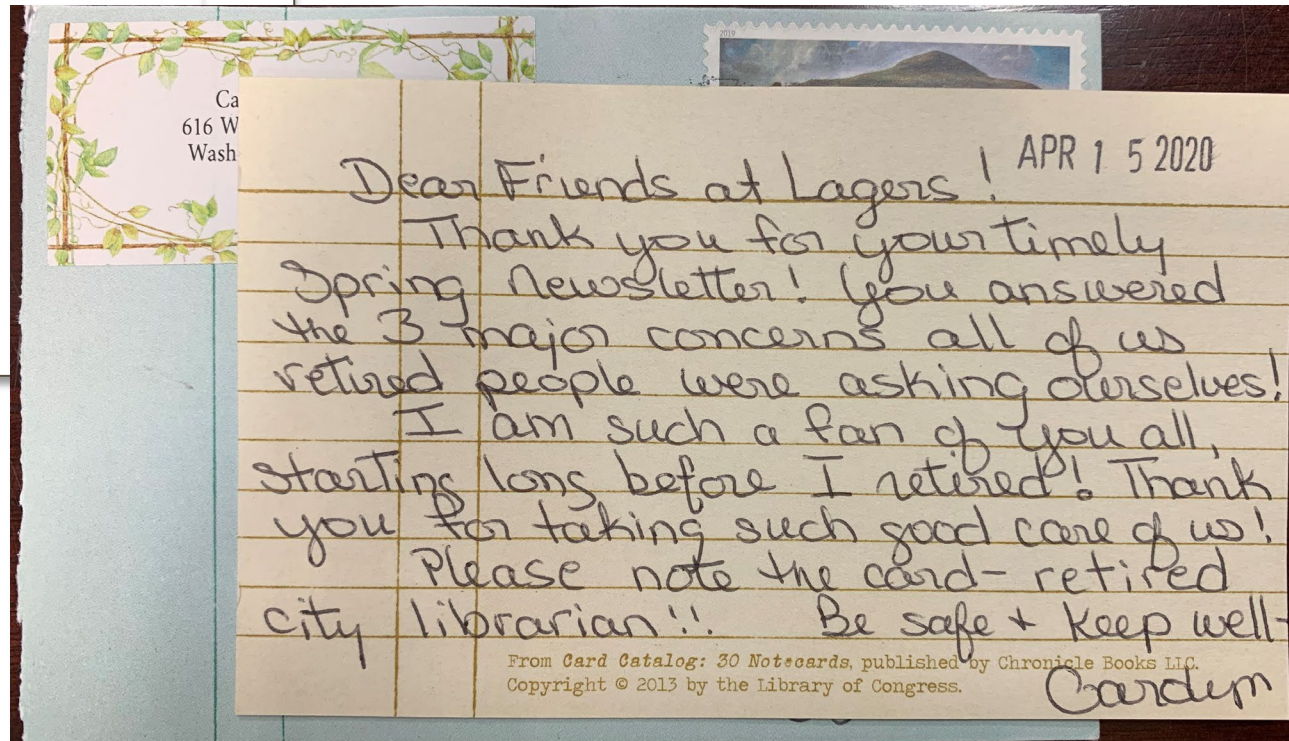 2019
Ca
616 W
Wash
APR 15 2020
Dear Friends at Lagers!
Thank you for your timely
Spring newsletter! You answered
the 3 major concerns all of us
retired people were asking ourselves!
I am such a fan of you all,
starting long before I retired! Thank
you for taking such good care of us!
Please note the card- retired
city librarian!! Be safe + keep well-
From Card Catalog: 30 Notecards, published by Chronicle Books LLC.
Copyright © 2013 by the Library of Congress.
Carolyn